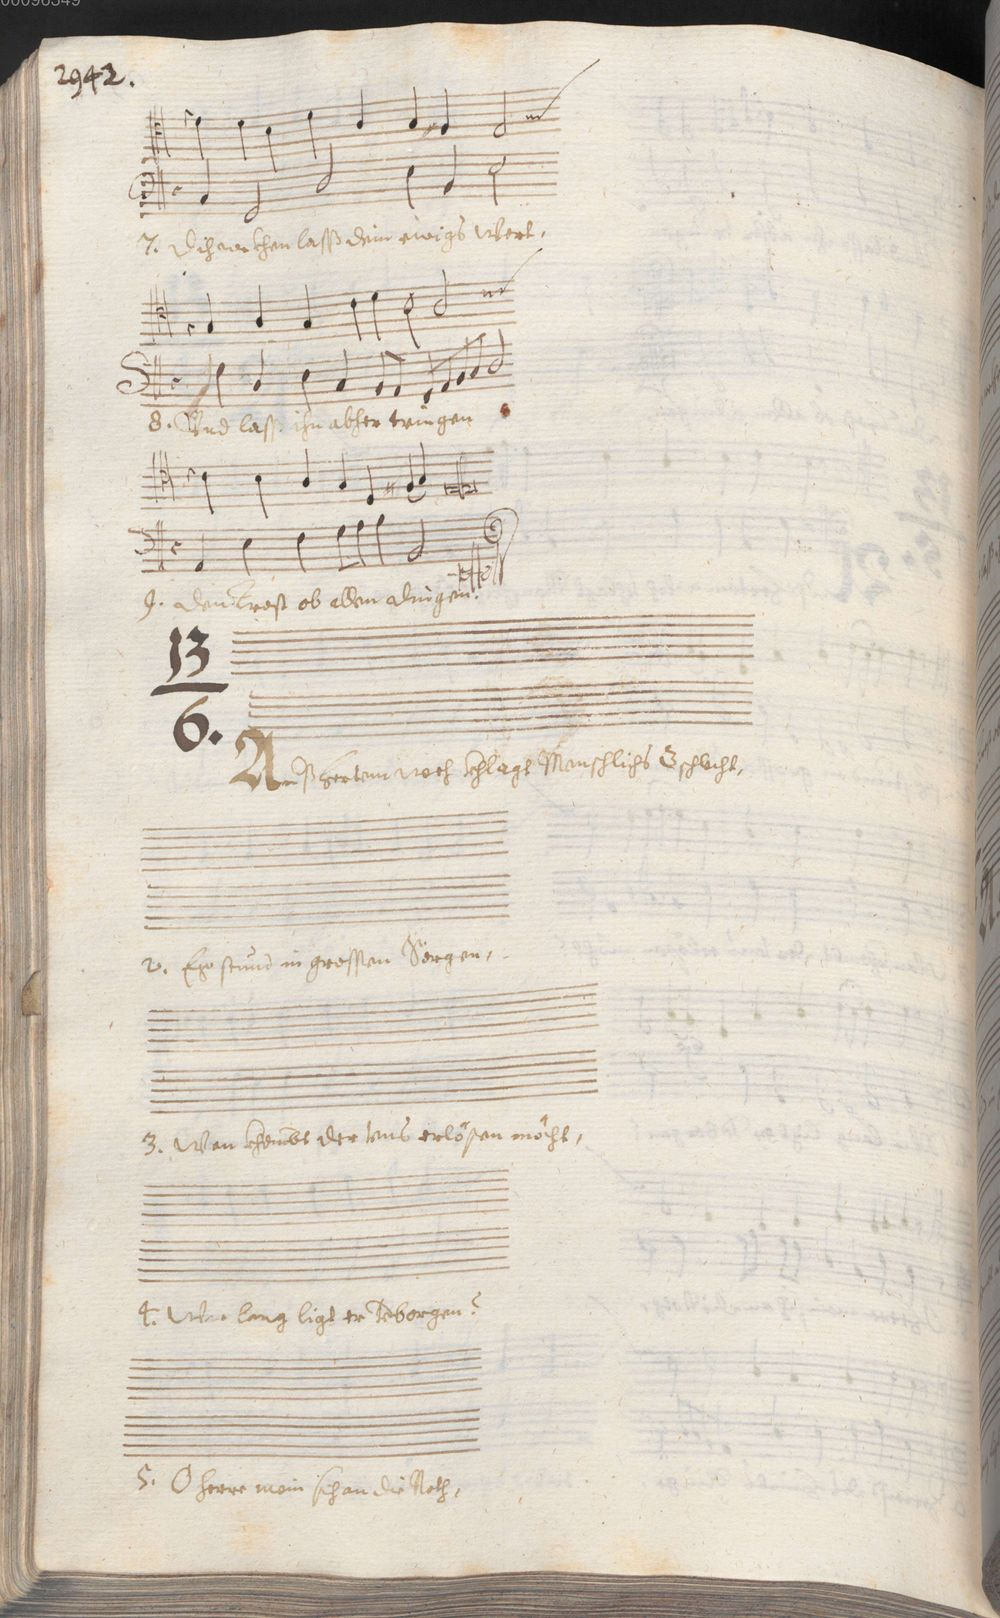 00096349
2942.
7. Dich lass dein ewigs Wort,
8. Und lass ihn abher tringen
9. Den trost ob allen dingen.
13
6.
Auß hertem woch schlagt Menschlichs Gschlecht,
2. Ehe stund in grossen Sorgen,
3. Wen khombt der uns erlösen möcht,
4. Wie lang ligt er verborgen?
5. O herre mein sich an die Noth,